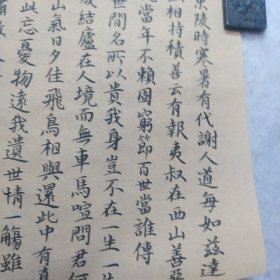 東陵時寒暑有代謝人道每如茲達
相持積善云有報夷叔在西山善惡
當年不賴固窮節百世當誰傳
世間名所以貴我身豈不在一生一生
結廬在人境而無車馬喧問君何
山氣日夕佳飛鳥相與還此中有真
此忘憂物遠我遺世情一觴雖